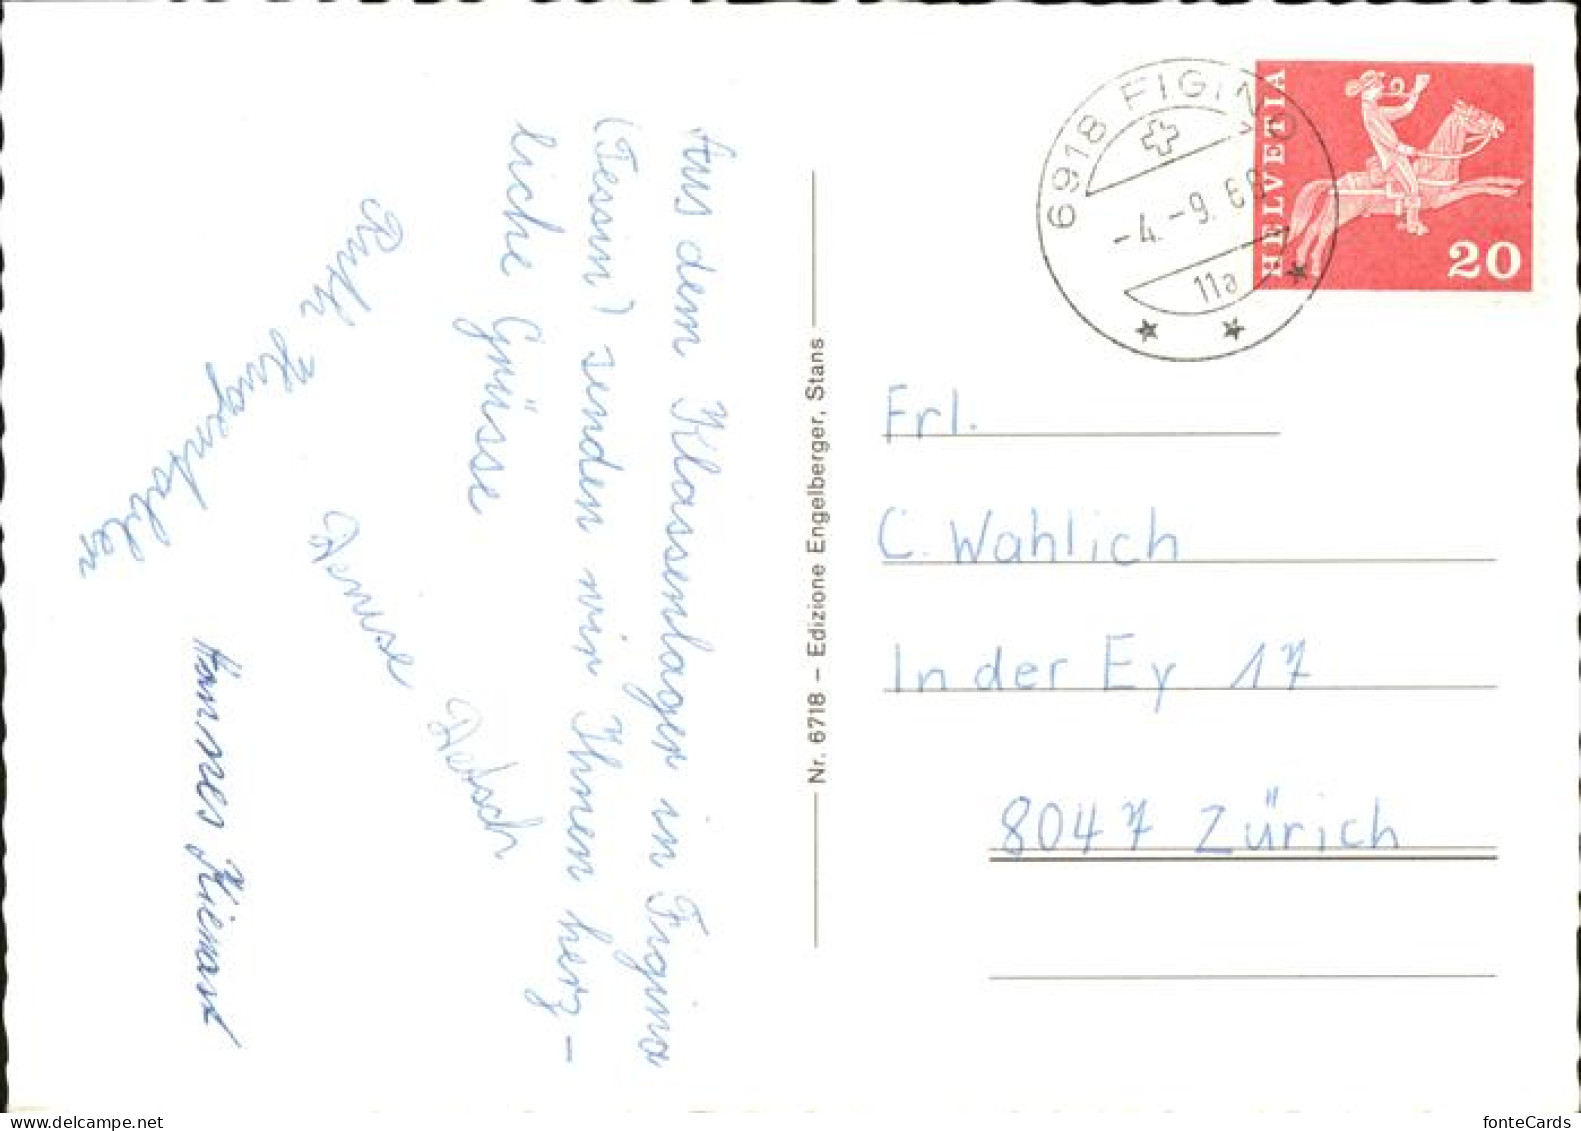 Aus dem Klassenlager in Figino
(Tessin) senden wir Ihnen herz-
liche Grüsse
Ruth Hugentobler
Denise Petsch
Hannes Kienast
Nr. 6718 – Edizione Engelberger, Stans
6918 FIGINO
-4.-9.68
11a
HELVETIA
20
Frl.
C. Wahlich
In der Ey 17
8047 Zürich
fonteCards